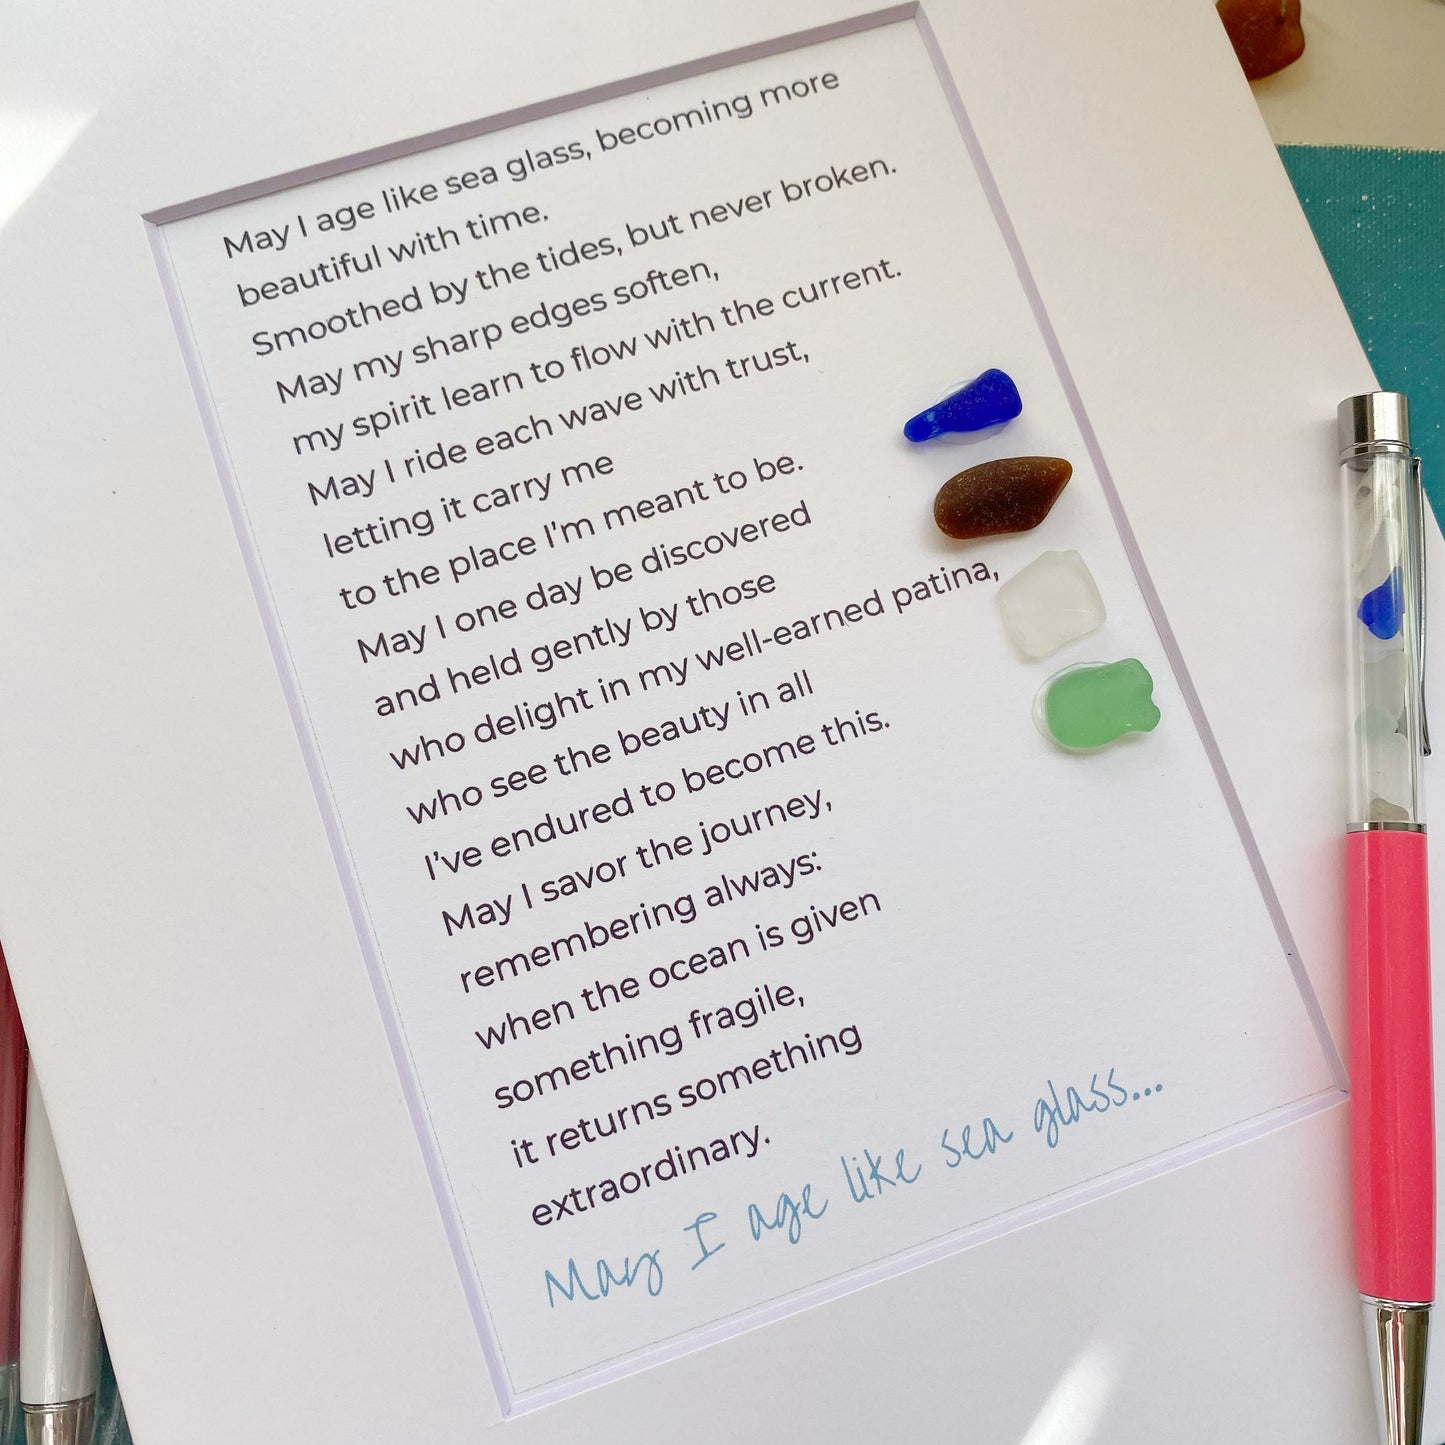 May I age like sea glass, becoming more
beautiful with time.
Smoothed by the tides, but never broken.
May my sharp edges soften,
my spirit learn to flow with the current.
May I ride each wave with trust,
letting it carry me
to the place I'm meant to be.
May I one day be discovered
and held gently by those
who delight in my well-earned patina,
who see the beauty in all
I've endured to become this.
May I savor the journey,
remembering always:
when the ocean is given
something fragile,
it returns something
extraordinary.
May I age like sea glass...